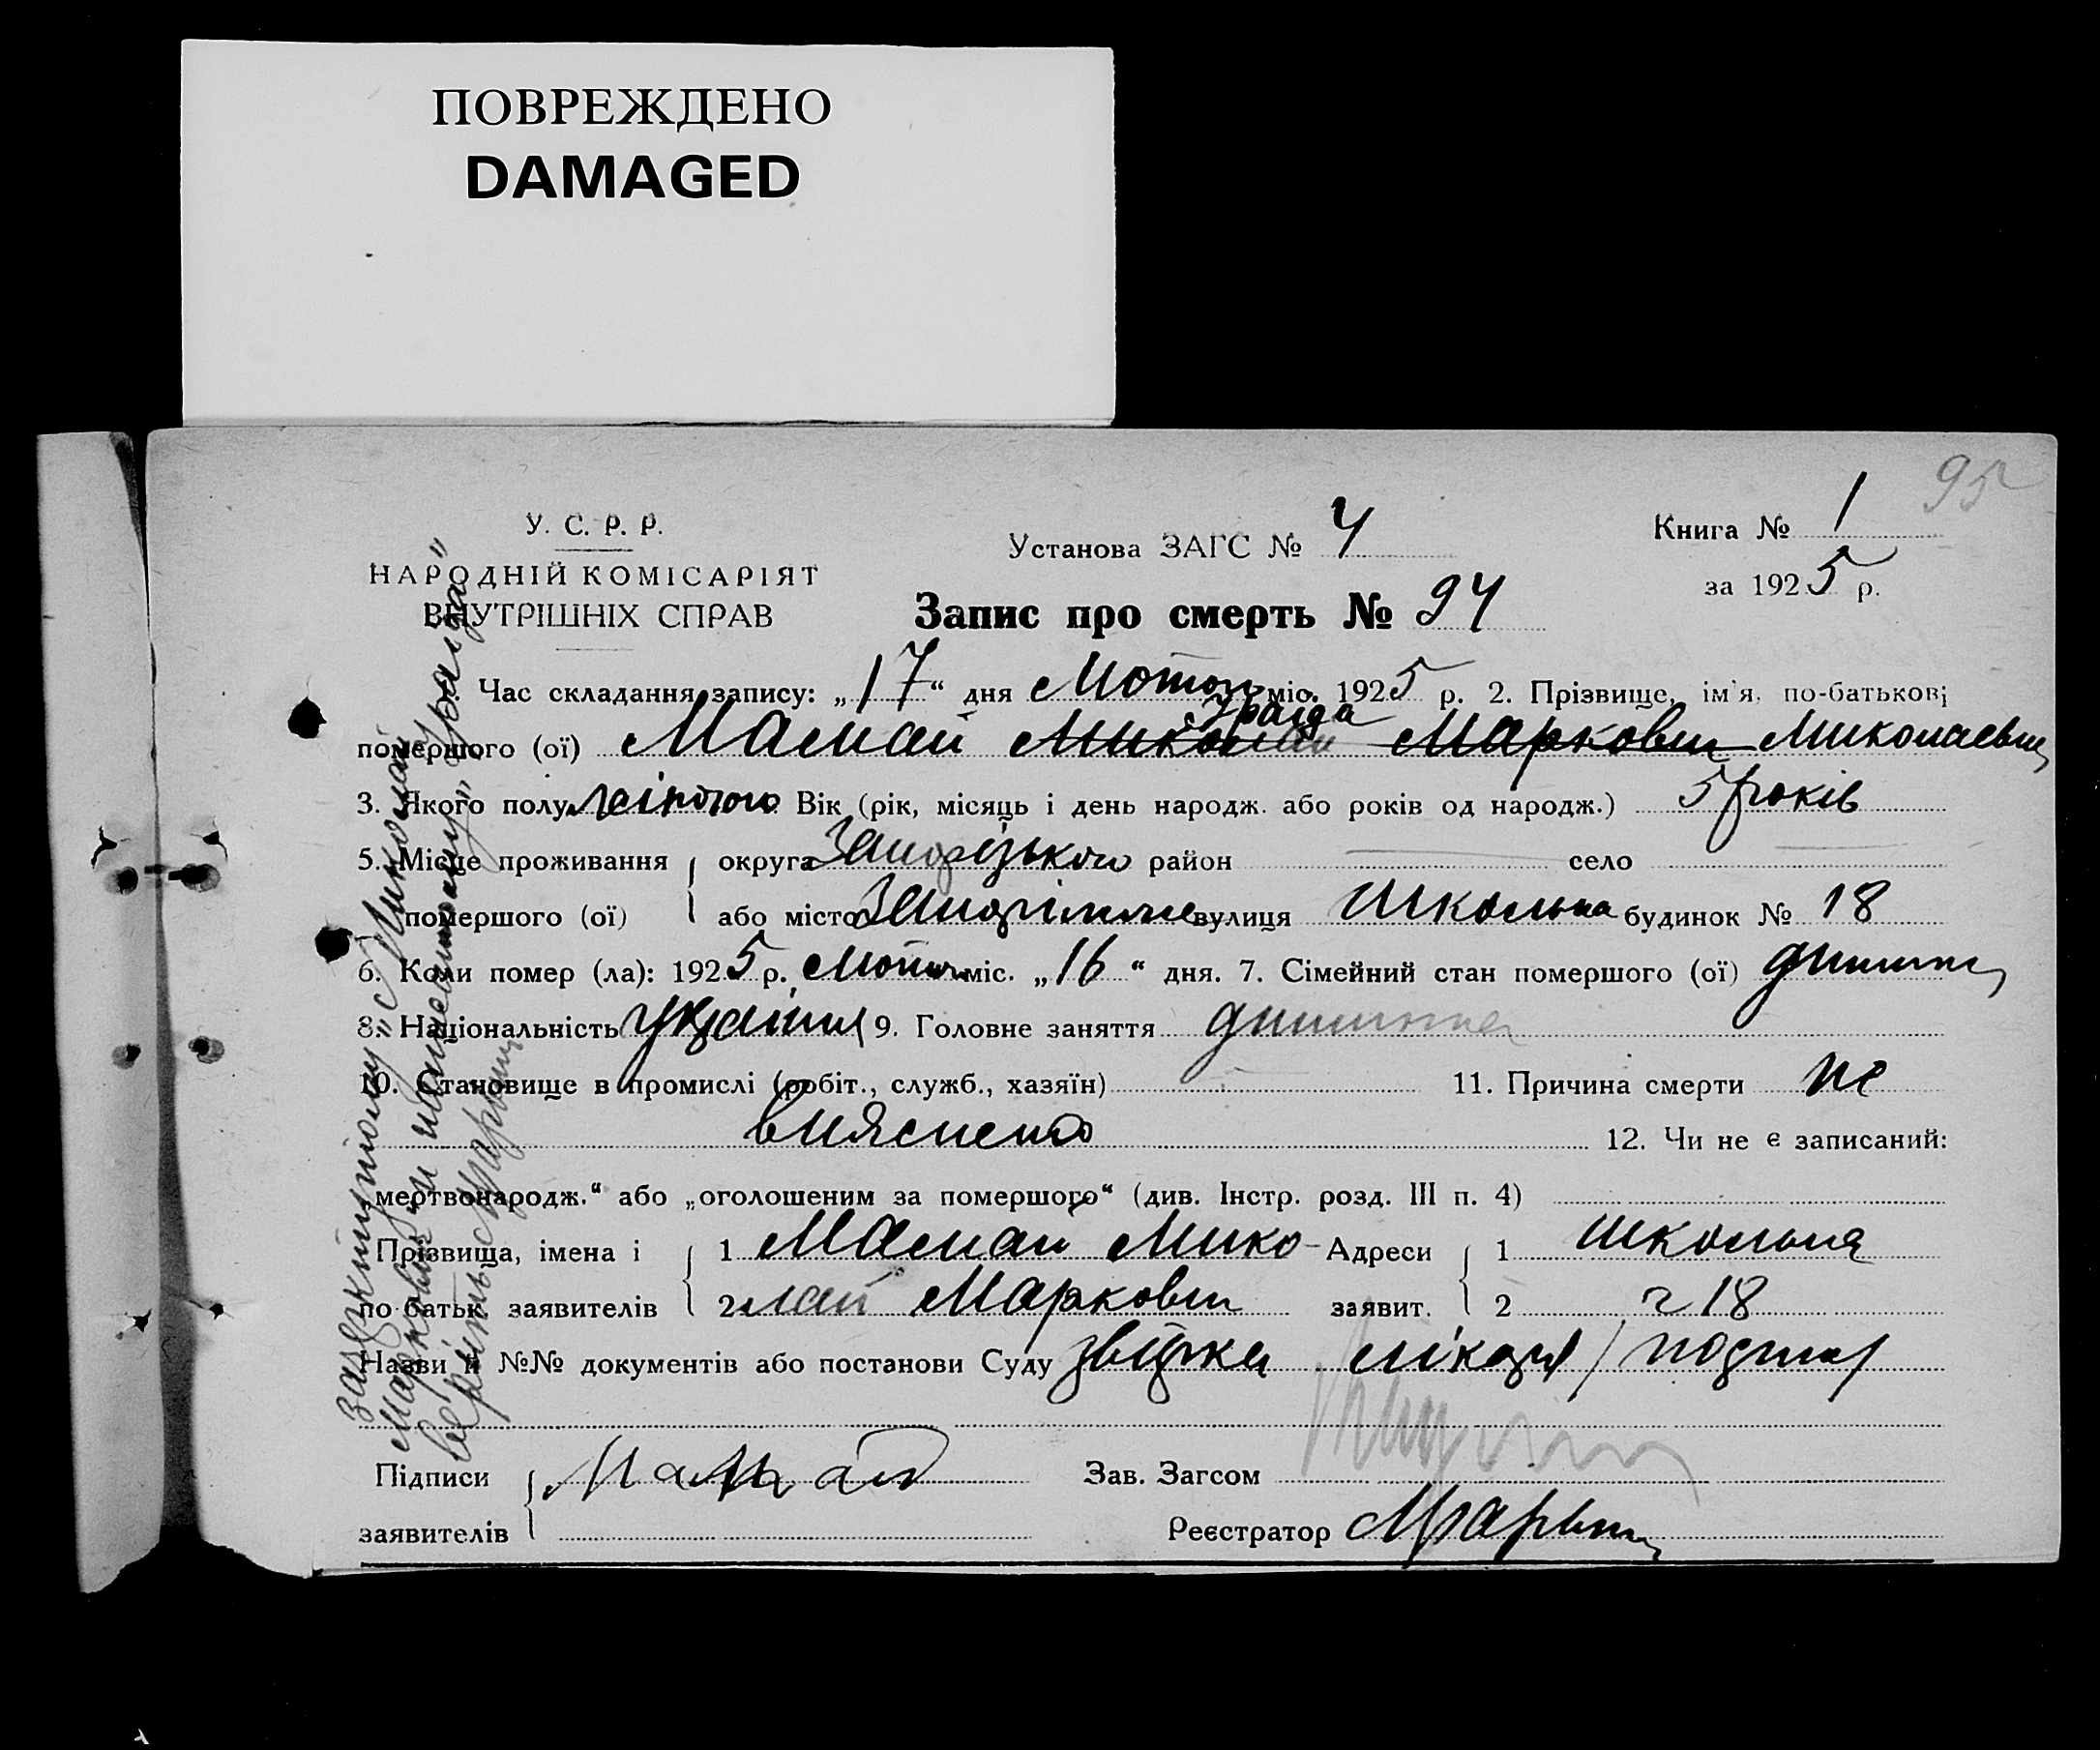 ПОВРЕЖДЕНО
DAMAGED
95
У. С. Р. Р.
НАРОДНІЙ КОМІСАРІЯТ
ВНУТРІШНІХ СПРАВ
Установа ЗАГС № 4
Книга № 1
за 1925 р.
Запис про смерть № 94
Час складання запису: „17“ дня Лютого міс. 1925 р. 2. Прізвище, ім'я, по-батькові
Іраїда
помершого (ої) Мамай Миколай Маркович Миколаевна
3. Якого полу жіночого Вік (рік, місяць і день народж. або років од народж.) 5 років
5. Місце проживання округа Запорізького район село
помершого (ої) або місто Запоріжжє вулиця Школьна будинок № 18
6. Коли помер (ла): 1925 р. Лютого міс. „16“ дня. 7. Сімейний стан помершого (ої) дитина
8. Національність україн 9. Головне заняття дитина
10. Становище в промислі (робіт., служб., хазяїн) 11. Причина смерти не
вияснено
12. Чи не є записаний:
мертвонародж.“ або „оголошеним за помершого“ (див. Інстр. розд. III п. 4)
Прізвища, імена і 1 Мамай Мико- Адреси 1 Школьна
по батьк. заявителів 2 лай Маркович заявит. 2 ч 18
Назви й №№ документів або постанови Суду звістка лікаря
Підписи Мамай Зав. Загсом
заявителів Реєстратор
Закреткутому „Миколай
Маркович“ и написаному „Іраїда“
вірить